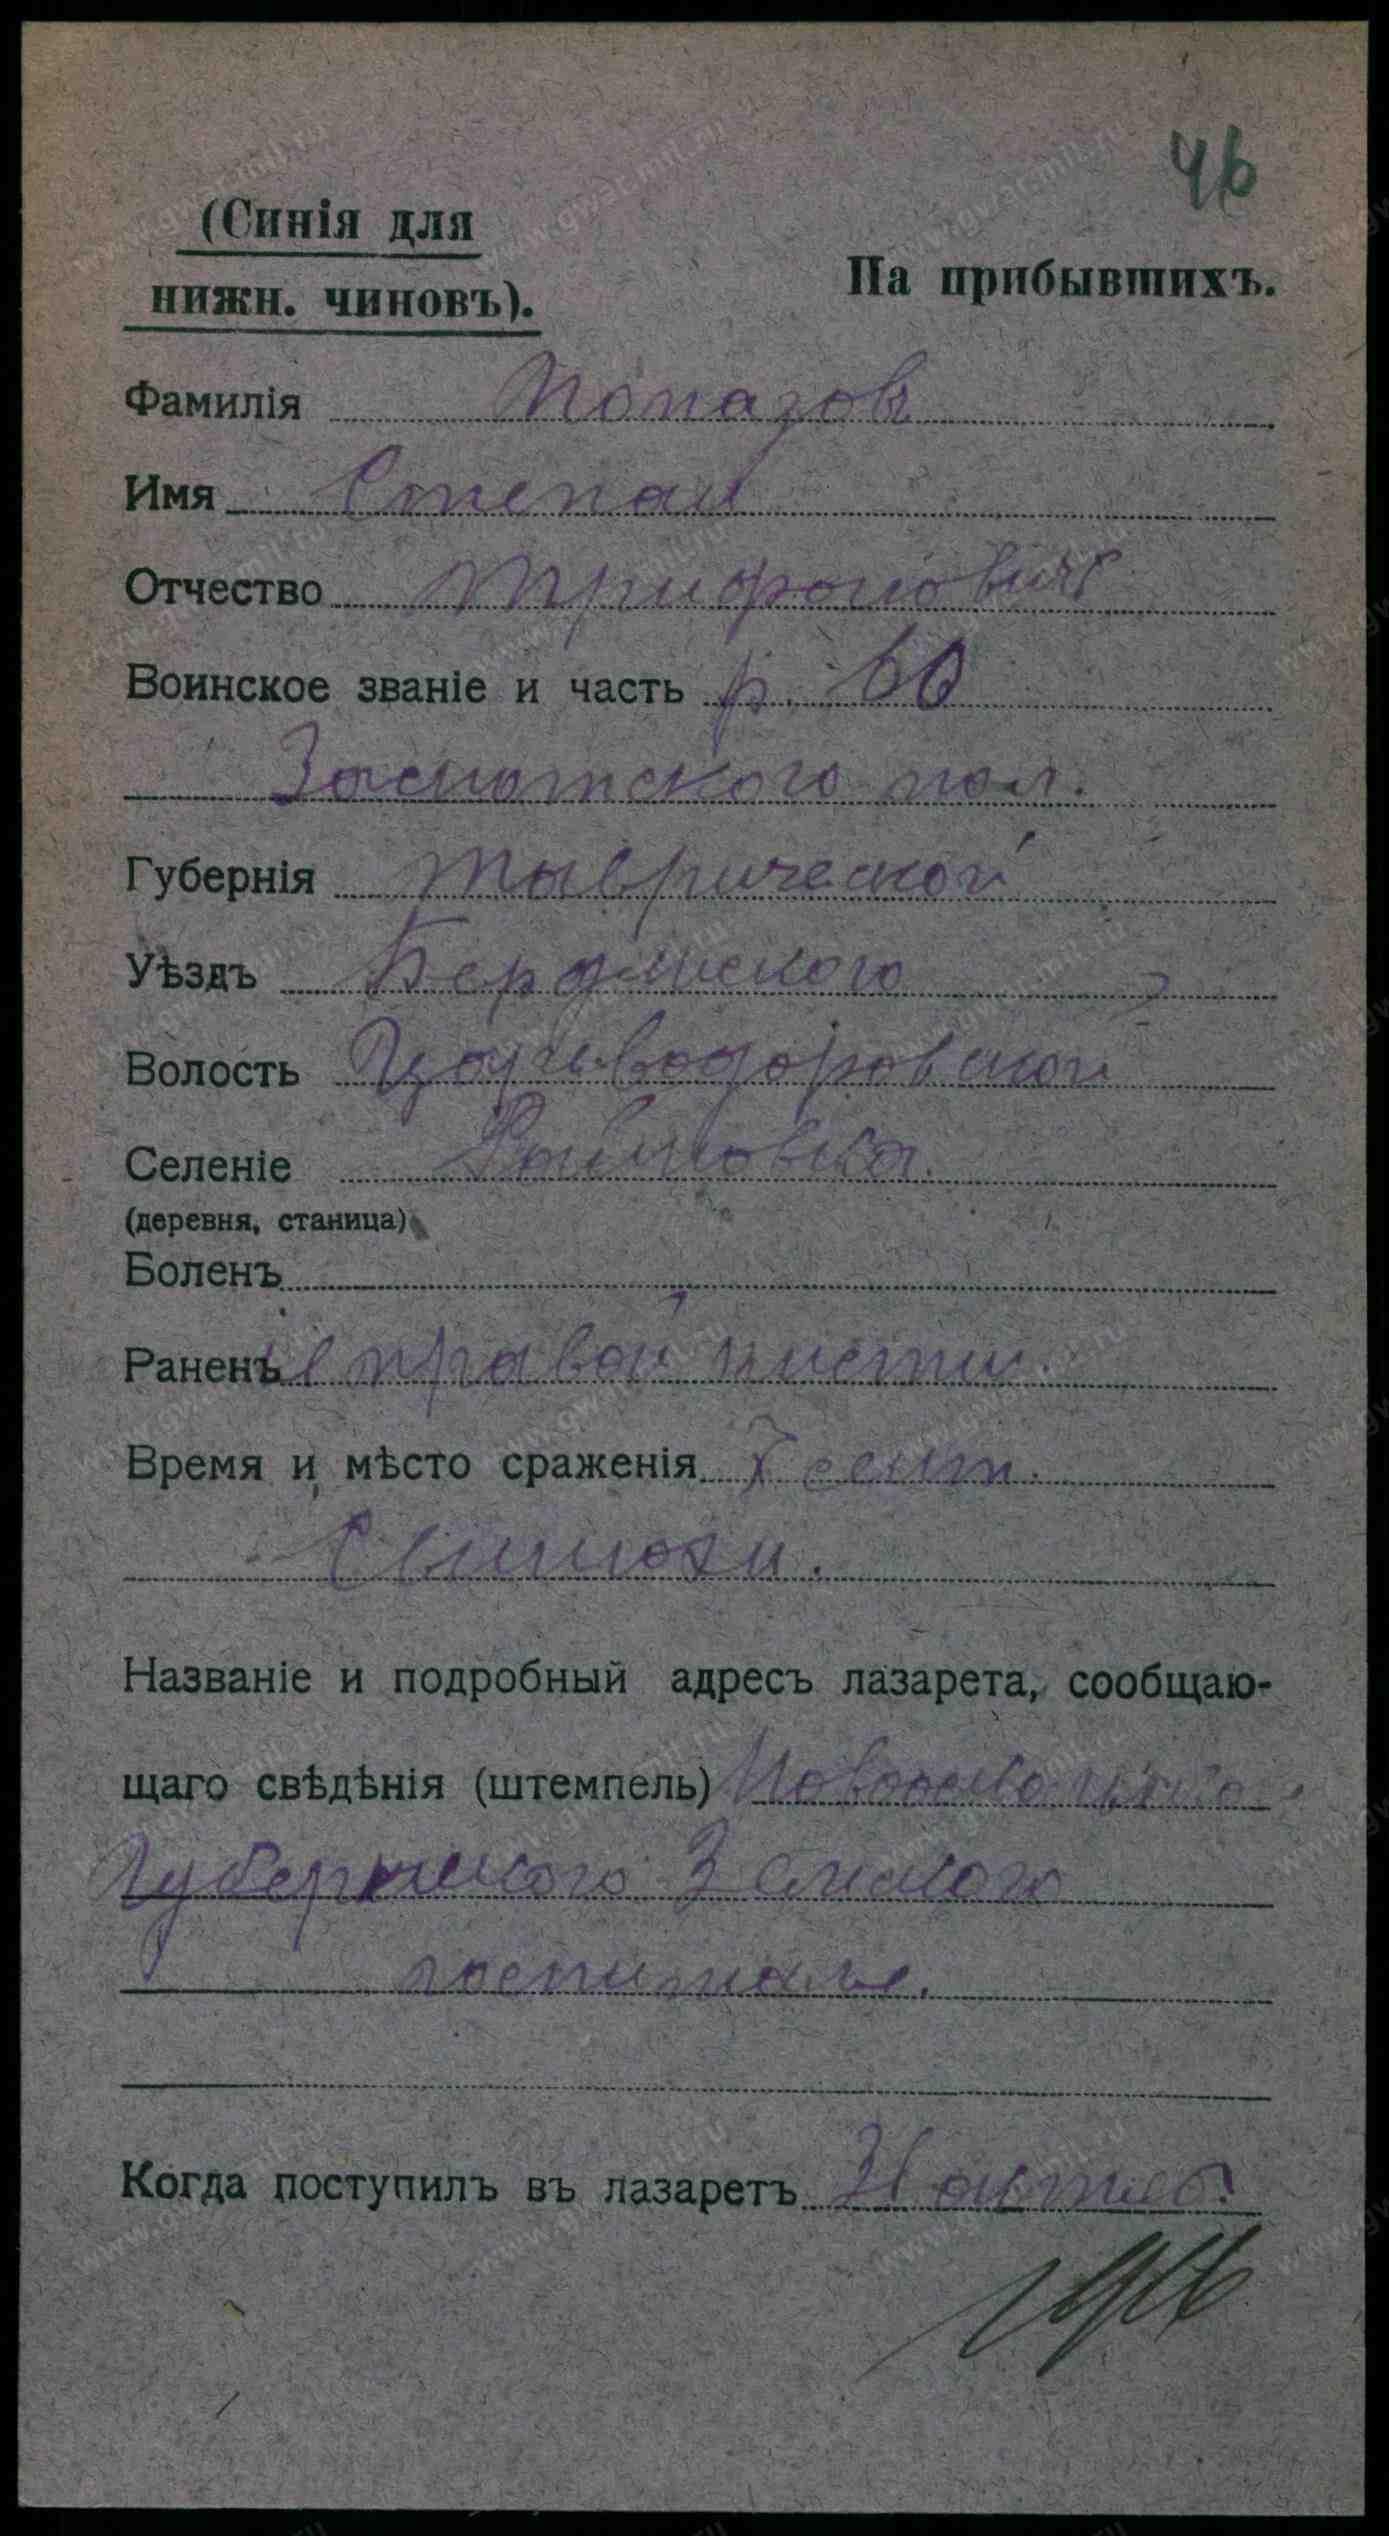 46
(Синія для
нижн. чиновъ).
На прибывшихъ.
Фамилія Попазов
Имя Степан
Отчество Трифонович
Воинское званіе и часть р. 60
Замотского пол.
Губернія Тыврической
Уѣздъ Бердянского
Волость
Селеніе
(деревня, станица)
Боленъ
Раненъ в правой кисти.
Время и мѣсто сраженія 7 сент.
Свинюхи.
Названіе и подробный адресъ лазарета, сообщаю-
щаго свѣдѣнія (штемпель)
Губернского Земского
госпиталя.
Когда поступилъ въ лазаретъ 31 октяб.
1916